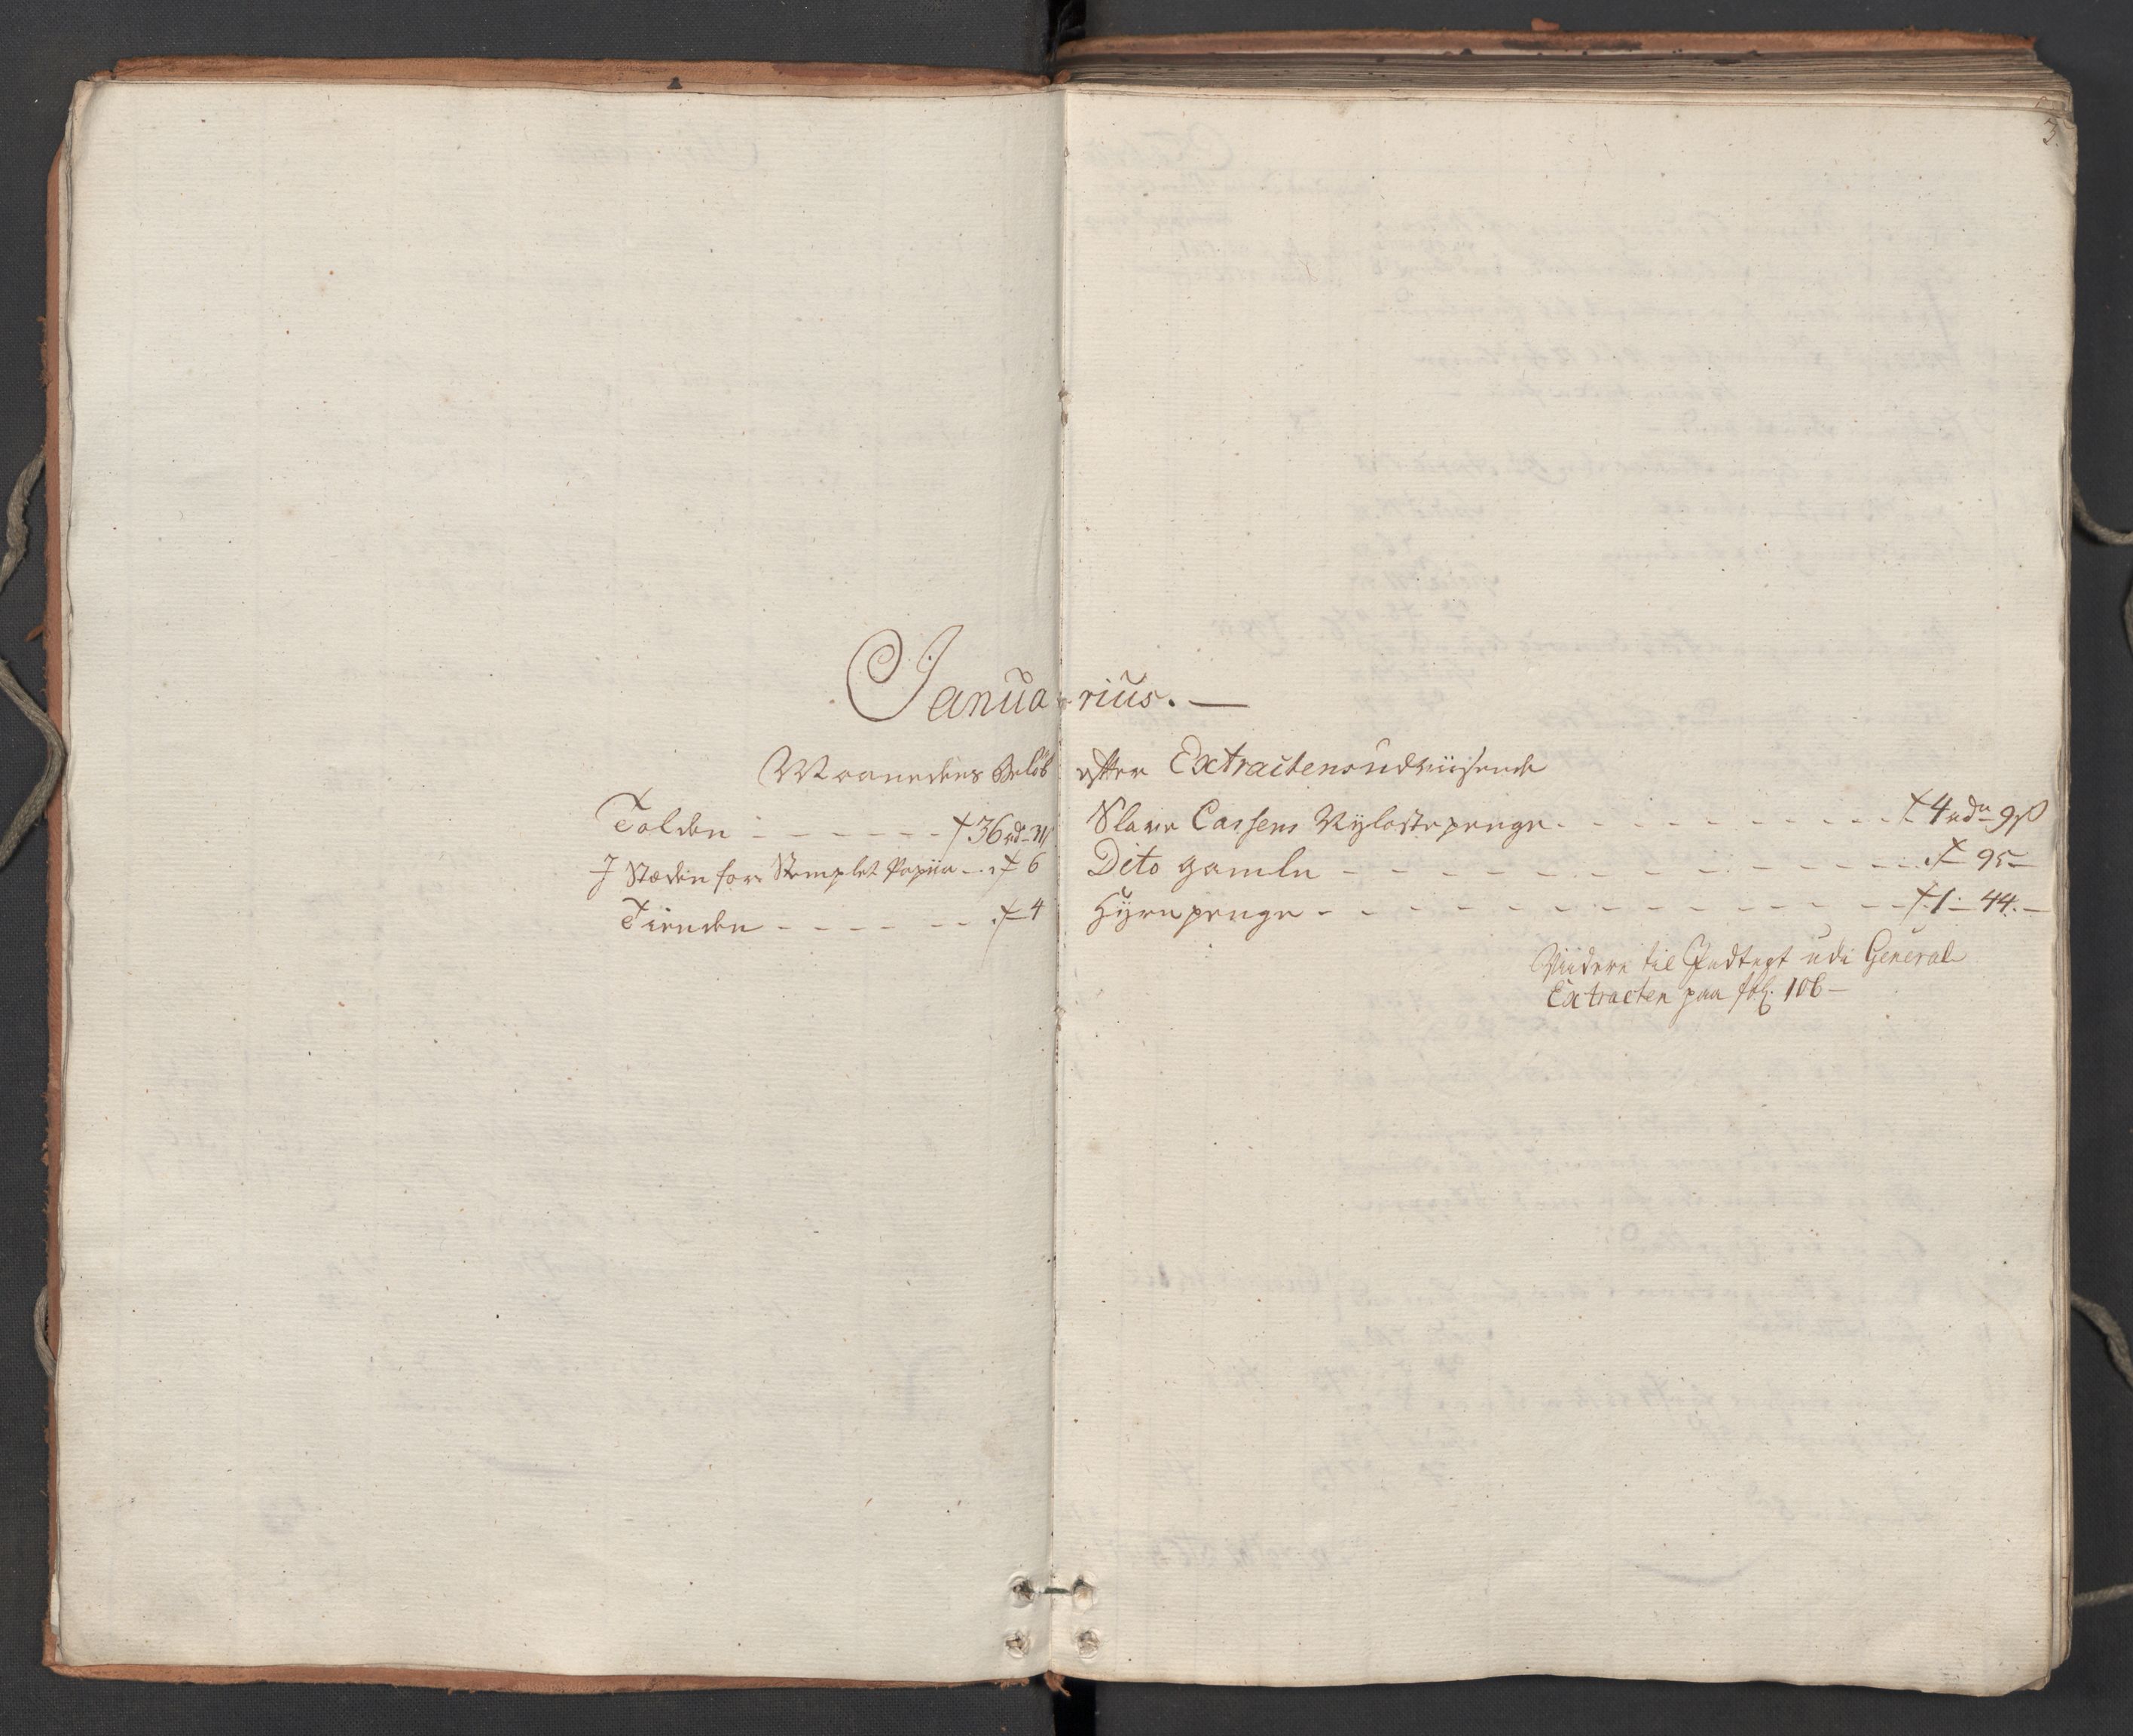 3.
Januarius. —
Maanedens Beløb efter Extractens udviisende
Tolden - - - - - - - ⨍ 36 rd
J Stæden for Stemplet Papiir - . ⨍ 6
Tienden - - - - - - - ⨍ 4
Slave Cassens Nye Laste penge - - - - - - - - - - ⨍ 4 rdr 9 ß
Dito gamle - - - - - - - - - - - - ⨍ — 95 —
Hyre penge - - - - - - - - - - - - - ⨍ 1 — 44. —
Viidere til Indtegt udi General
Extracten paa fol. 106 —